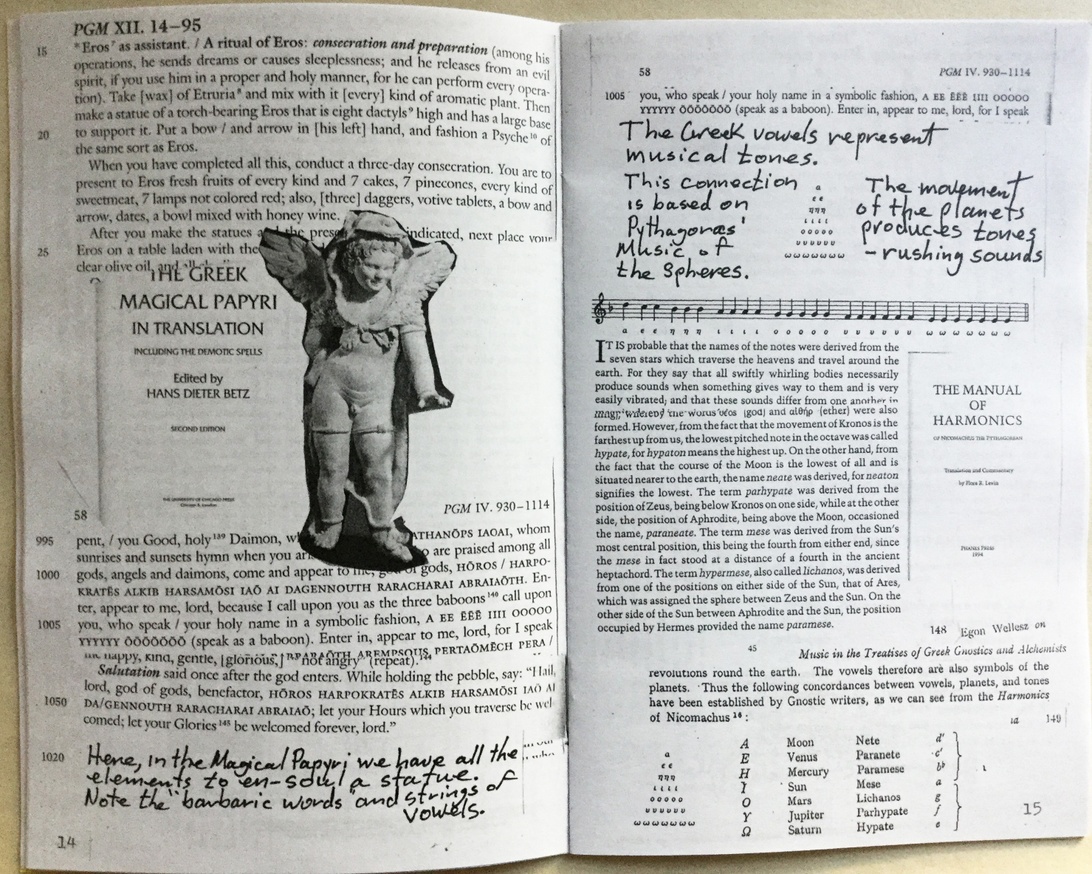 PGM XII. 14–95
15 "Eros" as assistant. / A ritual of Eros: consecration and preparation (among his
operations, he sends dreams or causes sleeplessness; and he releases from an evil
spirit, if you use him in a proper and holy manner, for he can perform every opera-
tion). Take [wax] of Etruria⁸ and mix with it [every] kind of aromatic plant. Then
make a statue of a torch-bearing Eros that is eight dactyls⁹ high and has a large base
20 to support it. Put a bow / and arrow in [his left] hand, and fashion a Psyche¹⁰ of
the same sort as Eros.
When you have completed all this, conduct a three-day consecration. You are to
present to Eros fresh fruits of every kind and 7 cakes, 7 pinecones, every kind of
sweetmeat, 7 lamps not colored red; also, [three] daggers, votive tablets, a bow and
arrow, dates, a bowl mixed with honey wine.
After you make the statues and the indicated, next place your
25 Eros on a table laden with the
clear olive oil, and
THE GREEK
MAGICAL PAPYRI
IN TRANSLATION
INCLUDING THE DEMOTIC SPELLS
Edited by
HANS DIETER BETZ
SECOND EDITION
THE UNIVERSITY OF CHICAGO PRESS
Chicago & London
58 PGM IV. 930–1114
995 pent, / you Good, holy¹³⁹ Daimon, ATHANŌPS IAOAI, whom
sunrises and sunsets hymn when you are praised among all
1000 gods, angels and daimons, come and appear to me, god of gods, HŌROS / HARPO-
KRATĒS ALKIB HARSAMŌSI IAŌ AI DAGENNOUTH RARACHARAI ABRAIAŌTH. En-
ter, appear to me, lord, because I call upon you as the three baboons¹⁴⁰ call upon
1005 you, who speak / your holy name in a symbolic fashion, A EE ĒĒĒ IIII OOOOO
YYYYYY ŌŌŌŌŌŌŌ (speak as a baboon). Enter in, appear to me, lord, for I speak
happy, kind, gentle, [glorious,] not angry (repeat).
AREMPSOUS PERTAŌMĒCH PERA /
Salutation said once after the god enters. While holding the pebble, say: "Hail,
lord, god of gods, benefactor, HŌROS HARPOKRATĒS ALKIB HARSAMŌSI IAŌ AI
1050 DA/GENNOUTH RARACHARAI ABRAIAŌ; let your Hours which you traverse be wel-
comed; let your Glories¹⁴⁵ be welcomed forever, lord."
1020 Here, in the Magical Papyri we have all the
elements to en-soul a statue.
Note the "barbaric words" and strings of
vowels.
14
58 PGM IV. 930–1114
1005 you, who speak / your holy name in a symbolic fashion, A EE ĒĒĒ IIII OOOOO
YYYYYY ŌŌŌŌŌŌŌ (speak as a baboon). Enter in, appear to me, lord, for I speak
The Greek vowels represent
musical tones.
This connection
is based on
Pythagoras'
Music of
the Spheres.
α
εε
ηηη
ιιιι
οοοοο
υυυυυυ
ωωωωωωω
The movement
of the planets
produces tones
– rushing sounds
α ε ε η η η ι ι ι ι ο ο ο ο ο υ υ υ υ υ υ ω ω ω ω ω ω ω
IT IS probable that the names of the notes were derived from the
seven stars which traverse the heavens and travel around the
earth. For they say that all swiftly whirling bodies necessarily
produce sounds when something gives way to them and is very
easily vibrated; and that these sounds differ from one another in
the words θεός (god) and αἰθήρ (ether) were also
formed. However, from the fact that the movement of Kronos is the
farthest up from us, the lowest pitched note in the octave was called
hypate, for hypaton means the highest up. On the other hand, from
the fact that the course of the Moon is the lowest of all and is
situated nearer to the earth, the name neate was derived, for neaton
signifies the lowest. The term parhypate was derived from the
position of Zeus, being below Kronos on one side, while at the other
side, the position of Aphrodite, being above the Moon, occasioned
the name, paraneate. The term mese was derived from the Sun's
most central position, this being the fourth from either end, since
the mese in fact stood at a distance of a fourth in the ancient
heptachord. The term hypermese, also called lichanos, was derived
from one of the positions on either side of the Sun, that of Ares,
which was assigned the sphere between Zeus and the Sun. On the
other side of the Sun between Aphrodite and the Sun, the position
occupied by Hermes provided the name paramese.
THE MANUAL
OF
HARMONICS
OF NICOMACHUS THE PYTHAGOREAN
Translation and Commentary
by Flora R. Levin
PHANES PRESS
1994
45
148 Egon Wellesz on
Music in the Treatises of Greek Gnostics and Alchemists
revolutions round the earth. The vowels therefore are also symbols of the
planets. Thus the following concordances between vowels, planets, and tones
have been established by Gnostic writers, as we can see from the Harmonics
of Nicomachus¹⁶:
149
α A Moon Nete d'
εε E Venus Paranete c'
ηηη H Mercury Paramese b♭
ιιιι I Sun Mese a
οοοοο O Mars Lichanos g
υυυυυυ Y Jupiter Parhypate f
ωωωωωωω Ω Saturn Hypate e
15